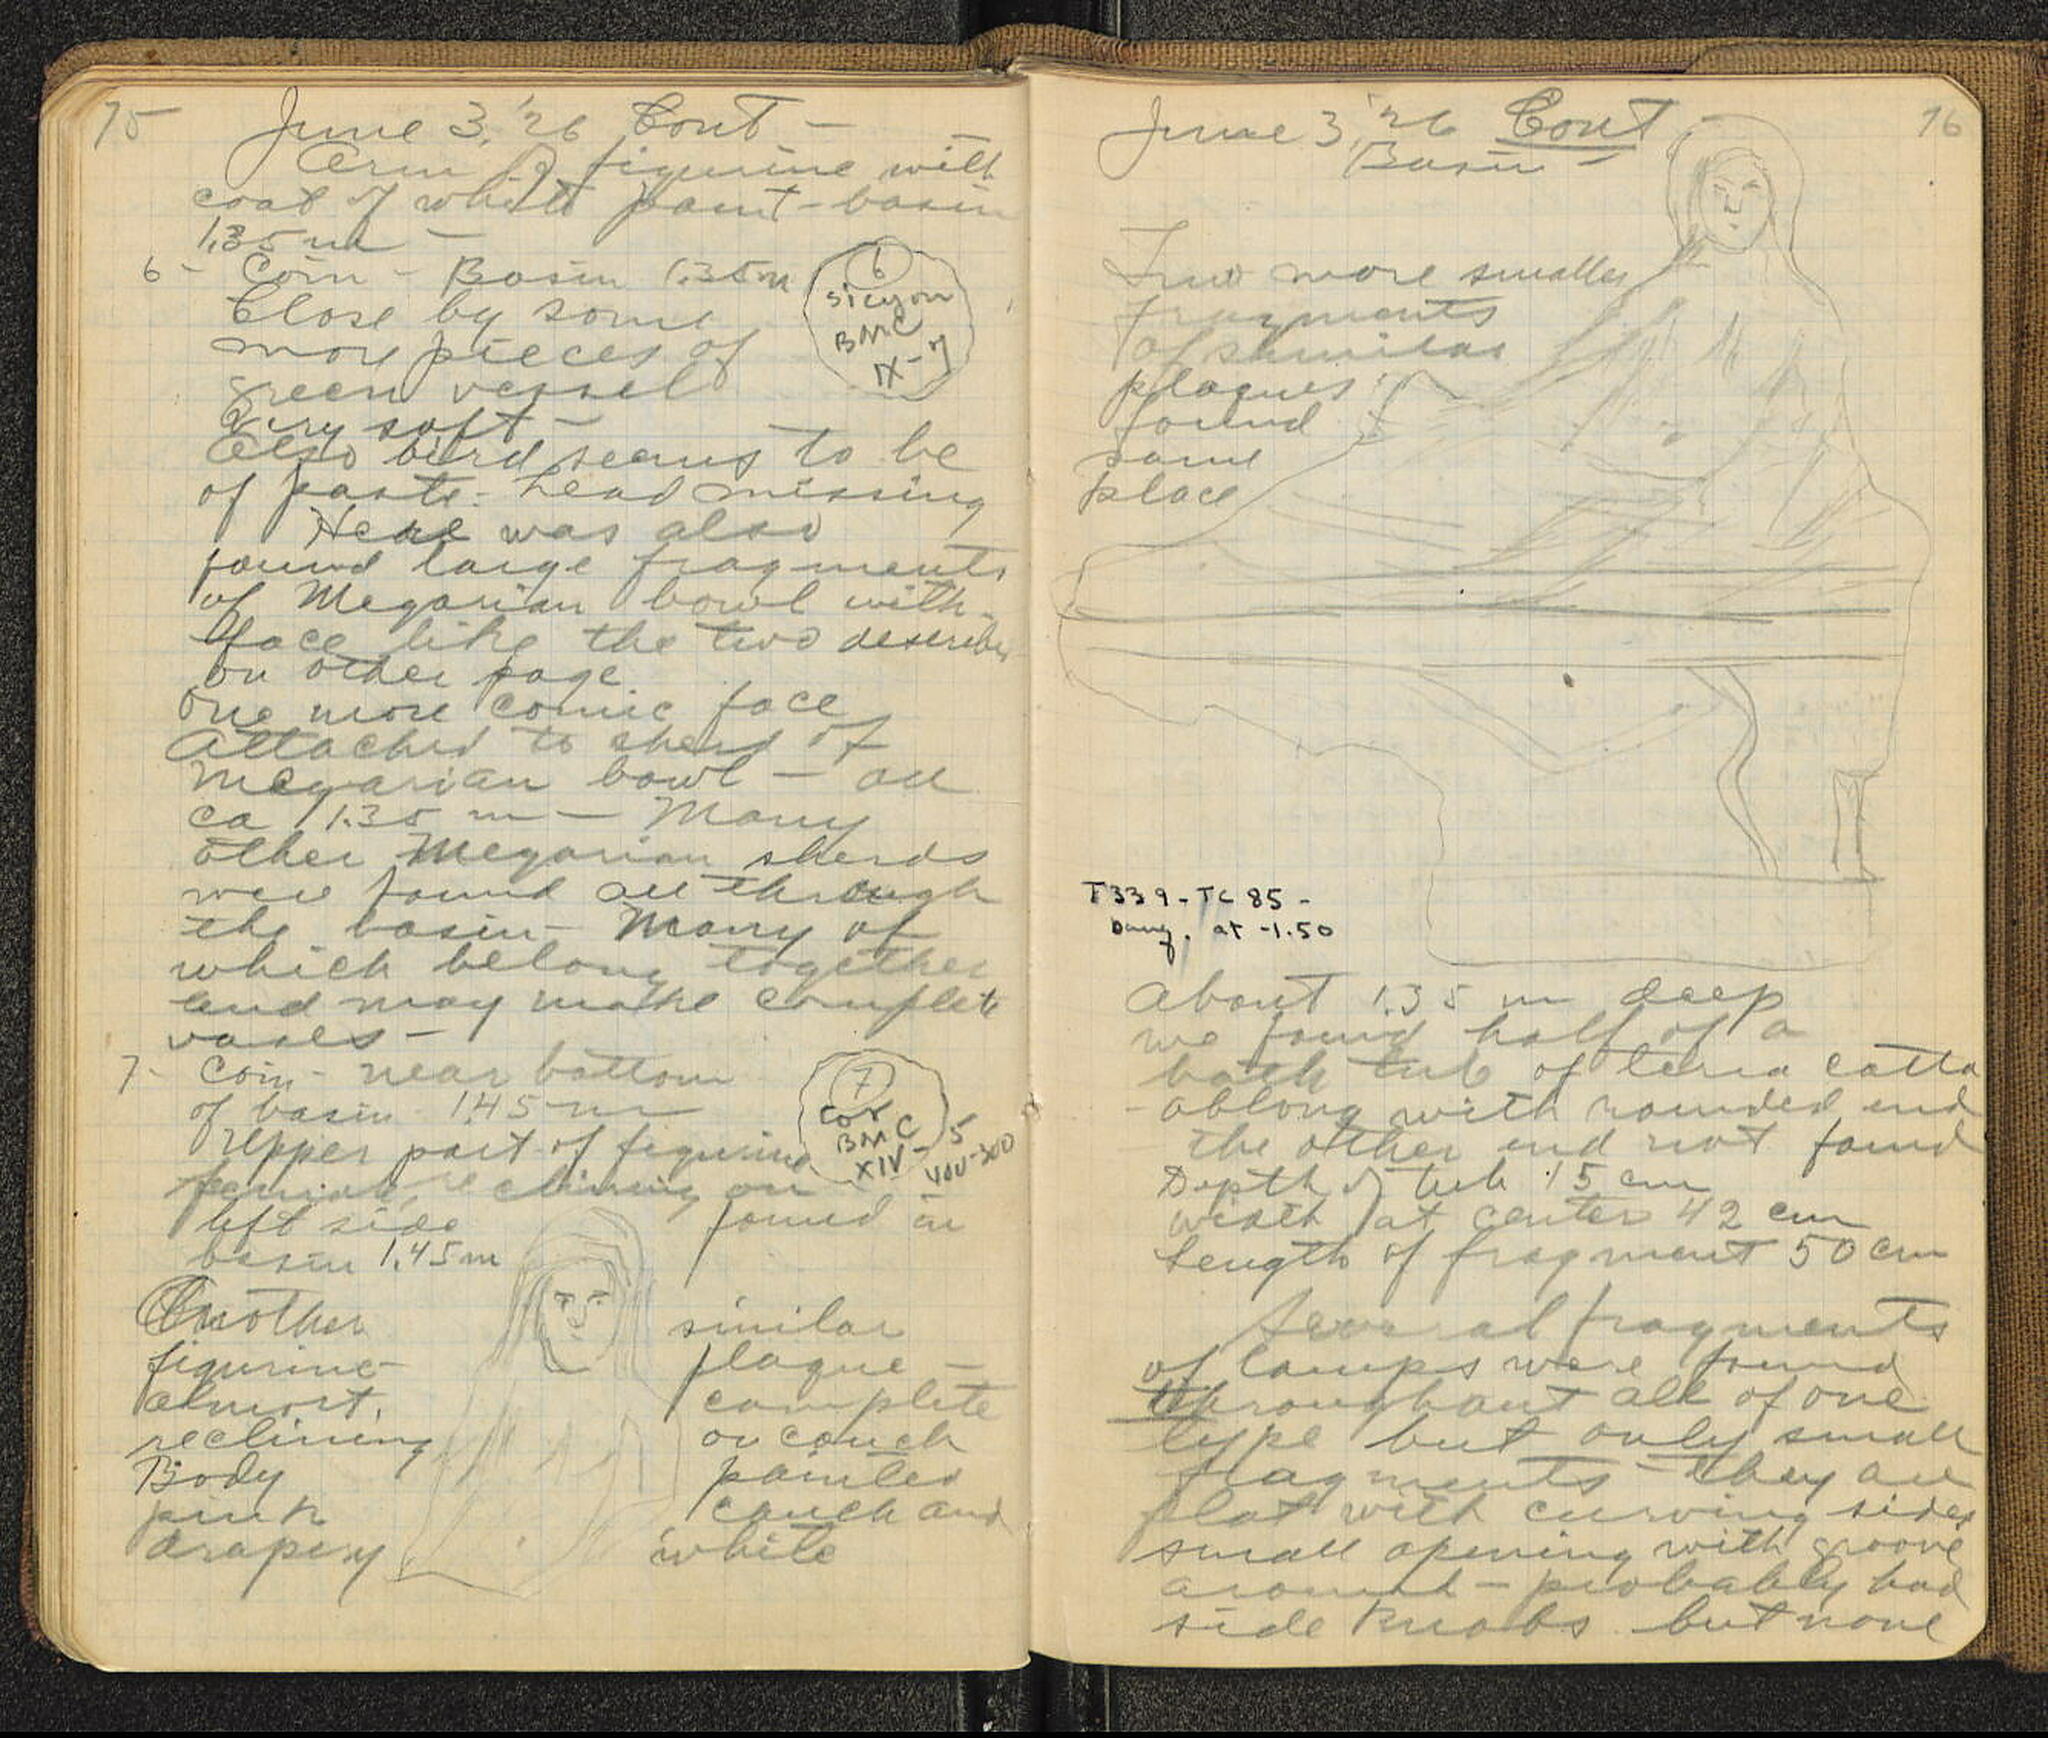 75
June 3, '26 Cont -
Arm of figurine with
coat of white paint - basin
1.35 m -
6 - Coin - Basin 1.35 m
6
Sicyon
BMC
IX-7
Close by some
more pieces of
green vessel
Very soft -
Also bird seems to be
of paste - head missing
Here was also
found large fragments
of Megarian bowl with
face like the two describes
on other page
One more comic face
attached to sherd of
Megarian bowl - all
ca 1.35 m - Many
other Megarian sherds
were found all through
the basin - Many of
which belong together
and may make complete
vases -
7 - Coin - near bottom
of basin 1.45 m
7
Cor
BMC
XIV - 5
400-300
Upper part of figurine
female, reclining on
left side found in
basin 1.45 m
Another similar
figurine plaque -
almost complete
reclining on couch
Body painted
pink couch and
drapery white
76
June 3, '26 Cont -
Basin -
Two more smaller
fragments
of similar
plaques
found
same
place
T339 - TC 85 -
at -1.50
About 1.35 m deep
we found half of a
bath tub of terra cotta
- oblong with rounded end
the other end not found
Depth of tub 15 cm
width at center 42 cm
Length of fragment 50 cm
Several fragments
of lamps were found
throughout all of one
type but only small
fragments - they are
flat with curving sides
small opening with groove
around - probably had
side knobs but none